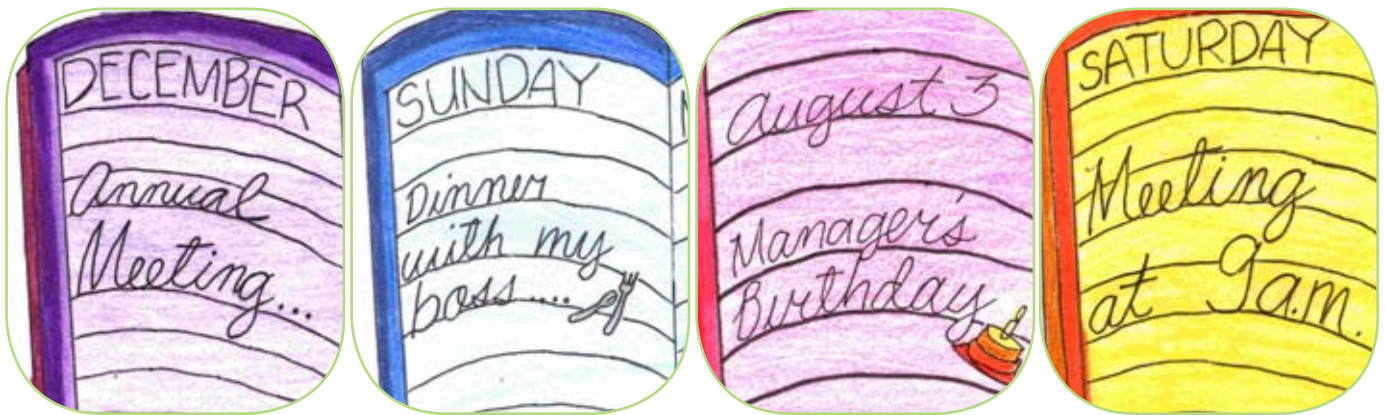 DECEMBER
Annual
Meeting...
SUNDAY
Dinner
with my
boss....
August 3
Manager's
Birthday
SATURDAY
Meeting
at 9a.m.